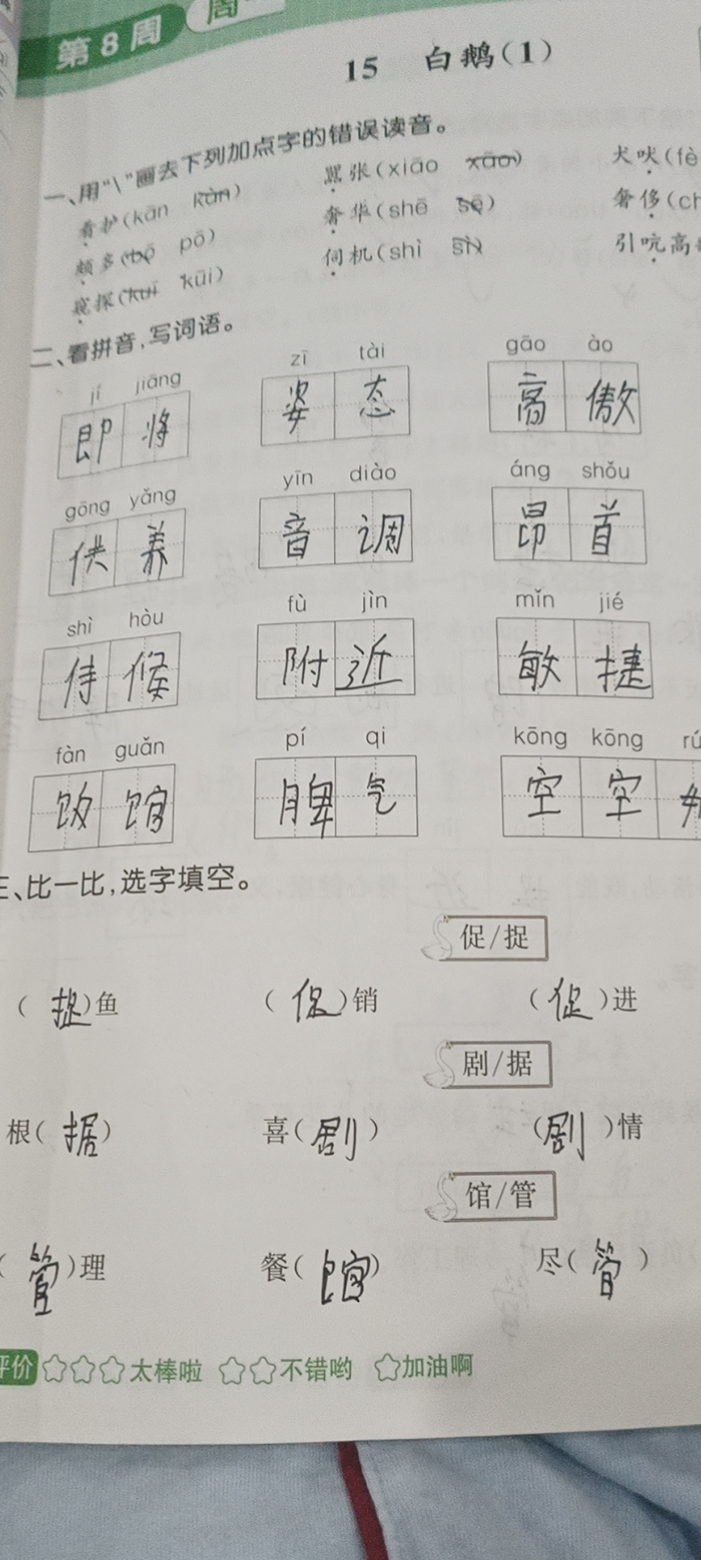 第8周 周
15 白鹅(1)
一、用“\”画去下列加点字的错误读音。
看护(kān kàn) 嚣张(xiāo xāo) 犬吠(fè
颇多(bō pō) 奢华(shē sē) 奢侈(ch
窥探(kuī kūi) 伺机(shì sì) 引吭高
二、看拼音,写词语。
jí jiāng zī tài gāo ào
即将 姿态 高傲
gōng yǎng yīn diào áng shǒu
供养 音调 昂首
shì hòu fù jìn mǐn jié
侍候 附近 敏捷
fàn guǎn pí qi kōng kōng rú
饭馆 脾气 空空
三、比一比,选字填空。
促/捉
(捉)鱼 (促)销 (促)进
剧/据
根(据) 喜(剧) (剧)情
馆/管
(管)理 餐(馆) 尽(管)
评价 太棒啦 不错哟 加油啊